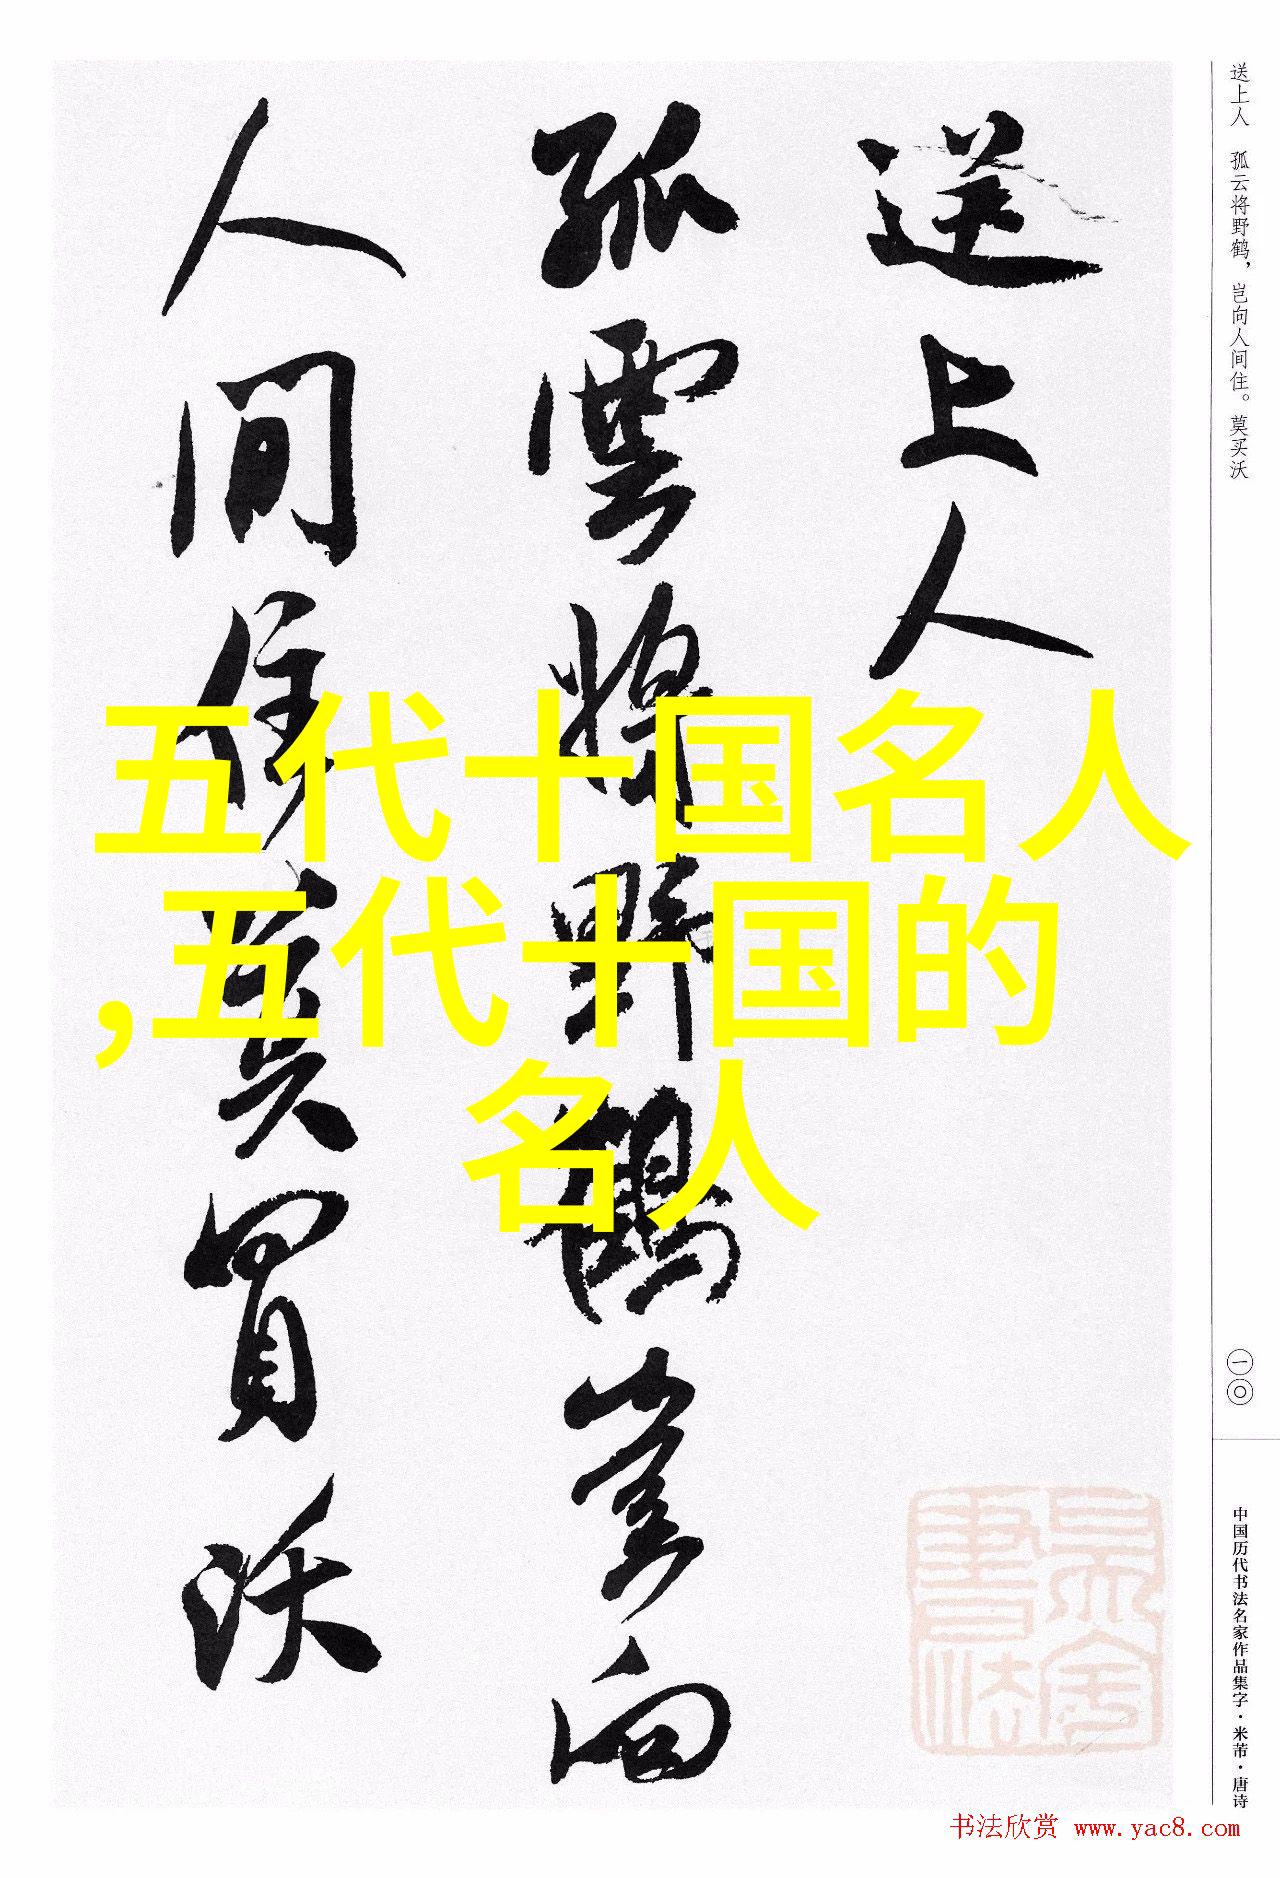 送上人
孤雲將野鶴豈向
人间住莫買沃
五代十国名人
,五代十国的
名人
送上人 孤云将野鹤，岂向人间住。莫买沃
一〇
中国历代书法名家作品集字·米芾·唐诗
书法欣赏 www.yac8.com